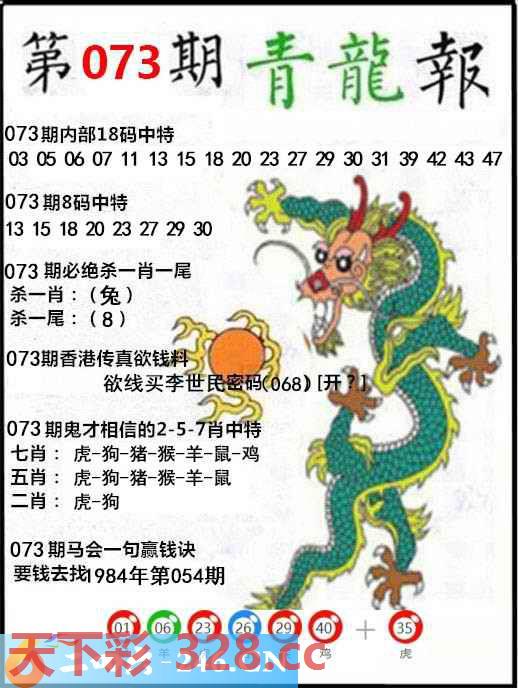 第073期青龍報
073期内部18码中特
03 05 06 07 11 13 15 18 20 23 27 29 30 31 39 42 43 47
073期8码中特
13 15 18 20 23 27 29 30
073期必绝杀一肖一尾
杀一肖:(兔)
杀一尾:(8)
073期香港传真欲钱料
欲线买李世民密码(068)[开?]
073期鬼才相信的2-5-7肖中特
七肖:虎-狗-猪-猴-羊-鼠-鸡
五肖:虎-狗-猪-猴-羊-鼠
二肖:虎-狗
073期马会一句赢钱诀
要钱去找1984年第054期
01 06 23 26 29 40 + 35
羊 鸡 虎
天下彩 328.cc